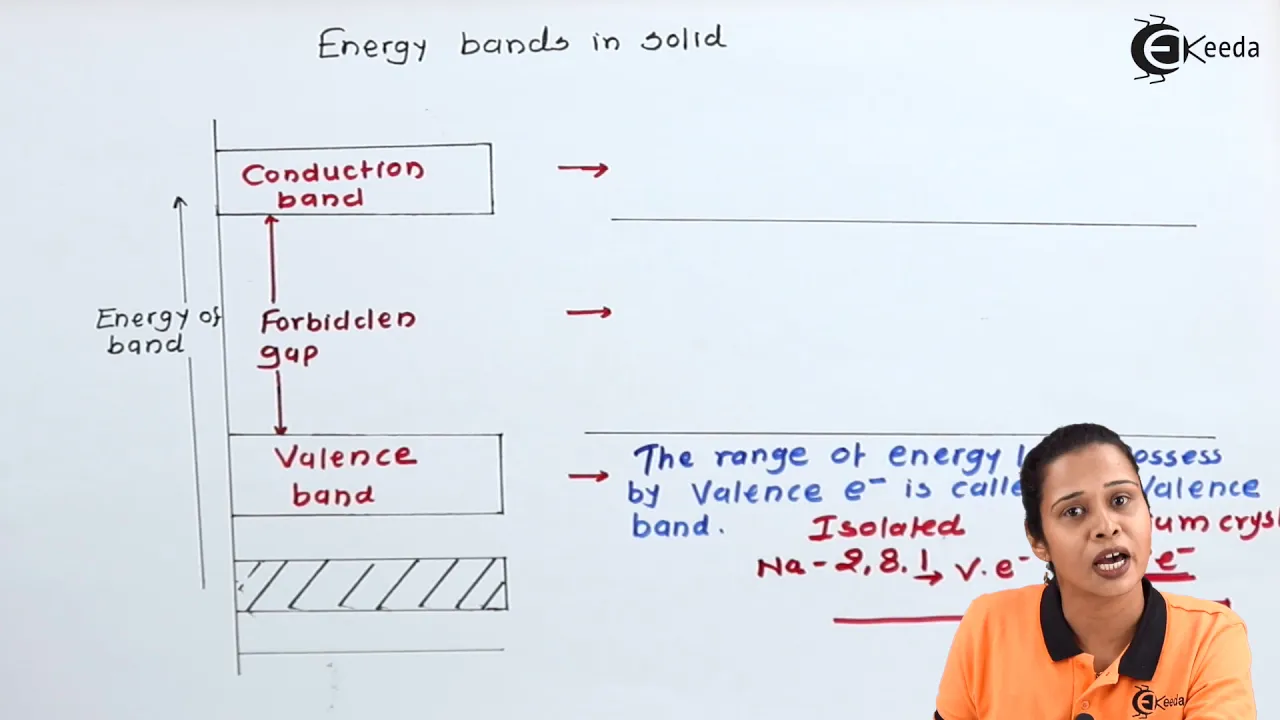 Energy bands in solid
EKeeda
Conduction
band
Energy of
band
Forbidden
gap
Valence
band
The range of energy ossess
by Valence e⁻ is calle Valence
band.
Isolated um crys
Na - 2, 8. 1 → V. e⁻ e⁻
EKeeda